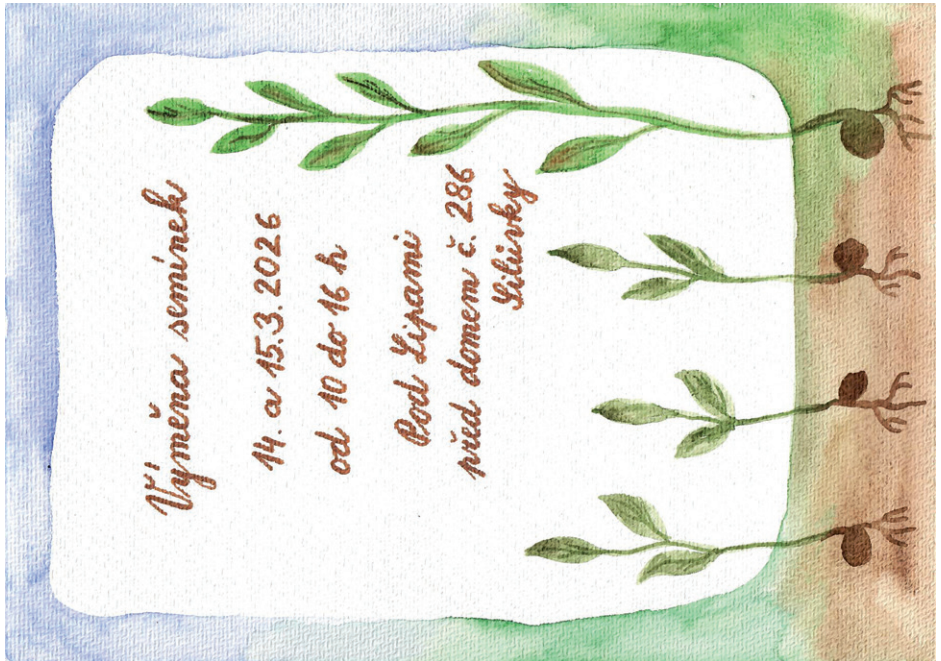 Výměna semínek
14. a 15.3.2026
od 10 do 16 h
Pod Lipami
před domem č. 286
Libivky